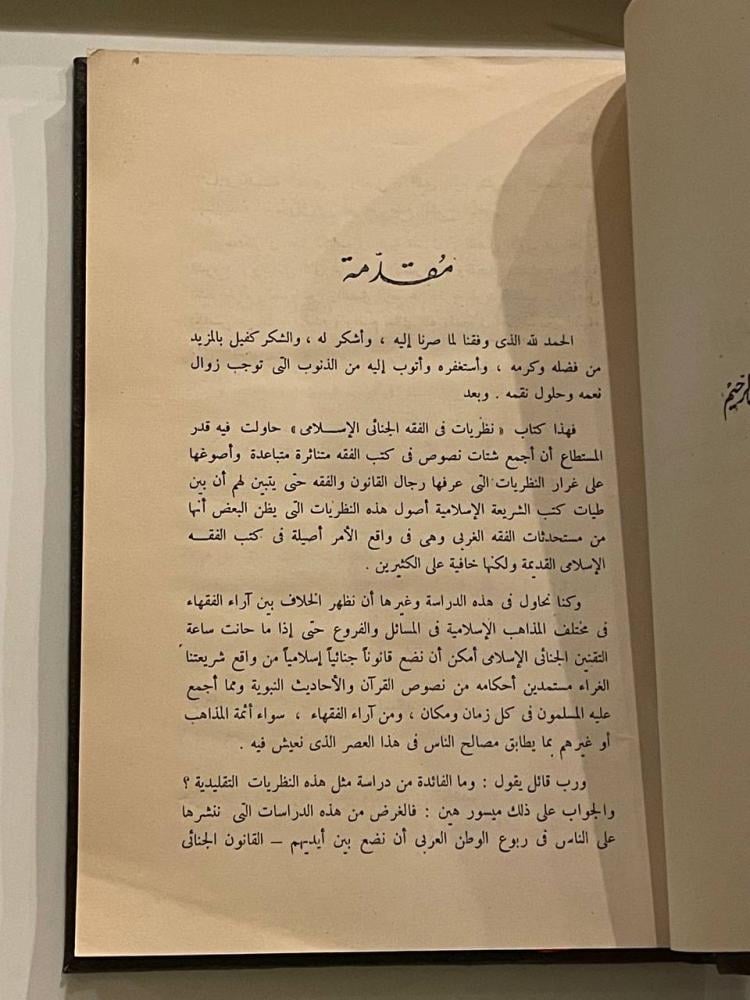 مُقدّمة
الحمد لله الذى وفقنا لما صرنا إليه ، وأشكر له ، والشكر كفيل بالمزيد
من فضله وكرمه ، وأستغفره وأتوب إليه من الذنوب التى توجب زوال
نعمه وحلول نقمه . وبعد
فهذا كتاب « نظريات فى الفقه الجنائى الإســـلامى » حاولت فيه قدر
المستطاع أن أجمع شتات نصوص فى كتب الفقه متناثرة متباعدة وأصوغها
على غرار النظريات التى عرفها رجال القانون والفقه حتى يتبين لهم أن بين
طيات كتب الشريعة الإسلامية أصول هذه النظريات التى يظن البعض أنها
من مستحدثات الفقه الغربى وهى فى واقع الأمر أصيلة فى كتب الفقـــه
الإسلامى القديمة ولكنها خافية على الكثيرين .
وكنا نحاول فى هذه الدراسة وغيرها أن نظهر الخلاف بين آراء الفقهاء
فى مختلف المذاهب الإسلامية فى المسائل والفروع حتى إذا ما حانت ساعة
التقنين الجنائى الإسلامى أمكن أن نضع قانوناً جنائياً إسلامياً من واقع شريعتنا
الغراء مستمدين أحكامه من نصوص القرآن والأحاديث النبوية ومما أجمع
عليه المسلمون فى كل زمان ومكان ، ومن آراء الفقهاء ، سواء أئمة المذاهب
أو غيرهم بما يطابق مصالح الناس فى هذا العصر الذى نعيش فيه .
ورب قائل يقول : وما الفائدة من دراسة مثل هذه النظريات التقليدية ؟
والجواب على ذلك ميسور هين : فالغرض من هذه الدراسات التى ننشرها
على الناس فى ربوع الوطن العربى أن نضع بين أيديهم – القانون الجنائى